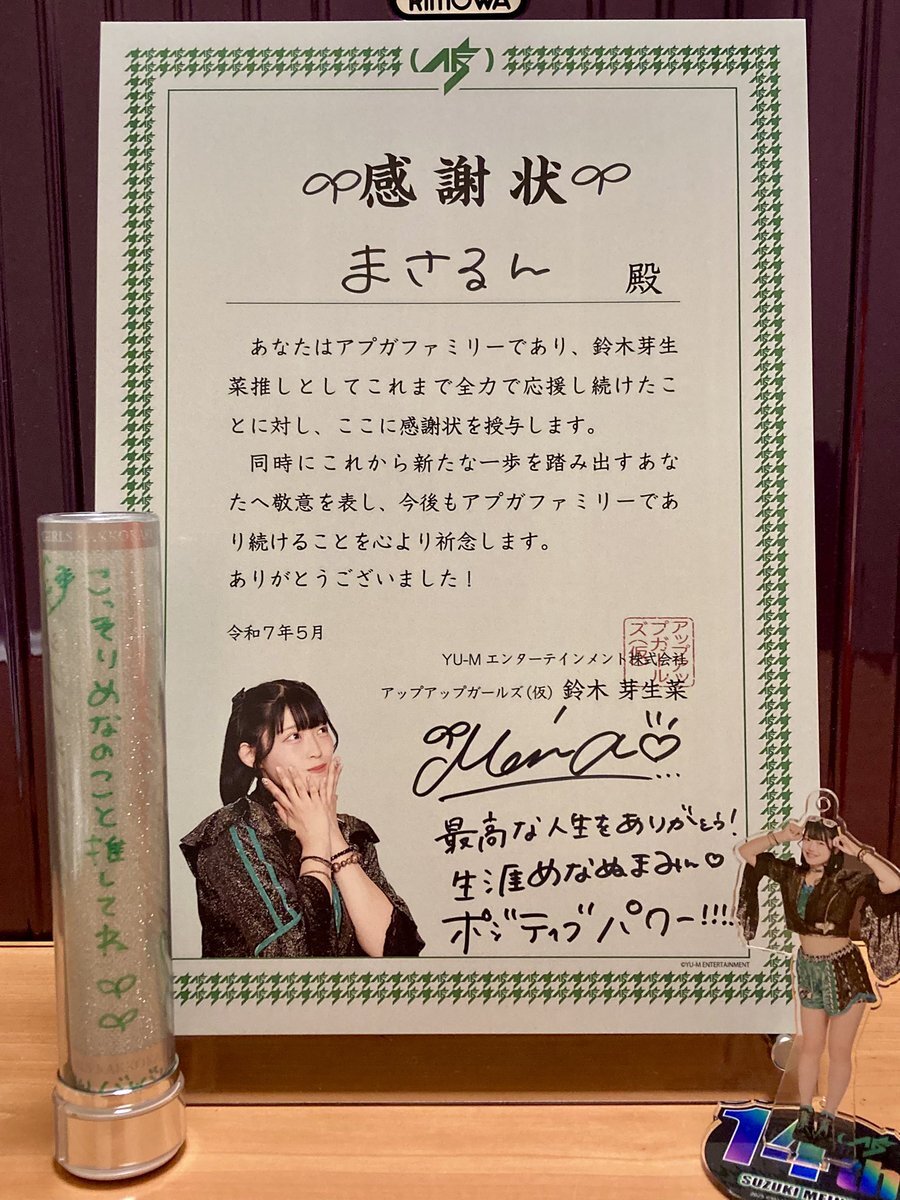 RIMOWA
感謝状
まさるん 殿
あなたはアプガファミリーであり、鈴木芽生
菜推しとしてこれまで全力で応援し続けたこ
とに対し、ここに感謝状を授与します。
同時にこれから新たな一歩を踏み出すあな
たへ敬意を表し、今後もアプガファミリーであ
り続けることを心より祈念します。
ありがとうございました！
令和7年5月
YU-Mエンターテインメント株式会社
アップアップガールズ(仮) 鈴木 芽生菜
アップアッ
プガール
ズ(仮)
Mena
最高な人生をありがとう!
生涯めなぬまみん♡
ポジティブパワー!!!!
©YU-M ENTERTAINMENT
GIRLS
こっそりめなのこと推してね
14th
SUZUKI